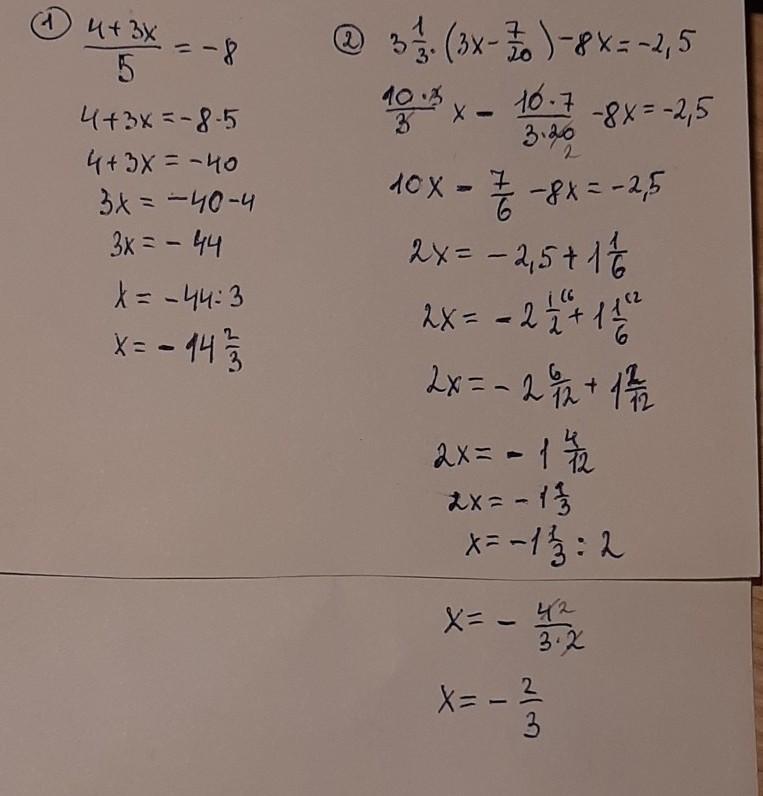 ① (4+3x)/5 = -8
4+3x = -8·5
4+3x = -40
3x = -40-4
3x = - 44
x = -44:3
x = - 14 2/3
② 3 1/3·(3x- 7/20)-8x=-2,5
(10·3)/3 x - (10·7)/(3·20) -8x=-2,5
2
10x - 7/6 -8x = -2,5
2x = - 2,5+1 1/6
2x = - 2 1/2 (6 + 1 1/6 (2
2x = - 2 6/12 + 1 2/12
2x = - 1 4/12
2x = -1 1/3
x = -1 1/3 : 2
x = - 4 2/(3·2)
x = - 2/3